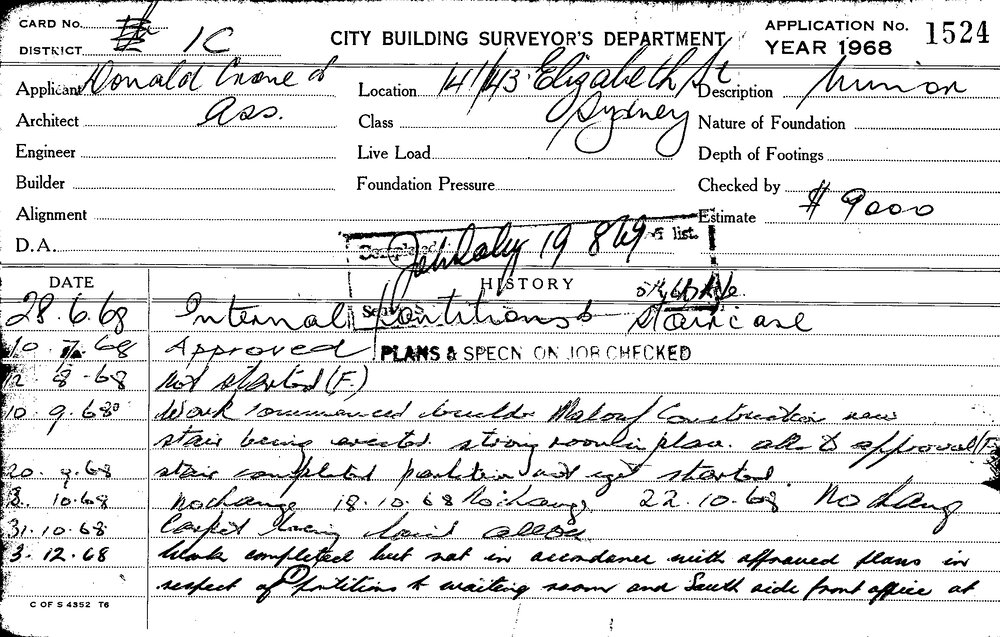 CARD No.
DISTRICT 1C
CITY BUILDING SURVEYOR'S DEPARTMENT
APPLICATION No. 1524
YEAR 1968
Applicant Donald Crone &
Ass.
Location 141/43 Elizabeth St
Sydney
Description Minor
Architect
Class
Nature of Foundation
Engineer
Live Load
Depth of Footings
Builder
Foundation Pressure
Checked by
Alignment
Estimate $ 9000
D.A.
Completed 19 list.
DATE
HISTORY
28.6.68 Internal partitions & staircase
10.7.68 Approved
PLANS & SPECN ON JOB CHECKED
12.8.68 Not started (F.)
10.9.68 Work commenced builder Construction new
stair being erected strong room in place. all to approval (F)
20.9.68 stair completed partition not yet started
3.10.68 No change 18.10.68 No change 22.10.68 No change
31.10.68 Carpet being laid
3.12.68 Work completed but not in accordance with approved plans in
respect of partitions to waiting room and South side front office at
C OF S 4352 T6